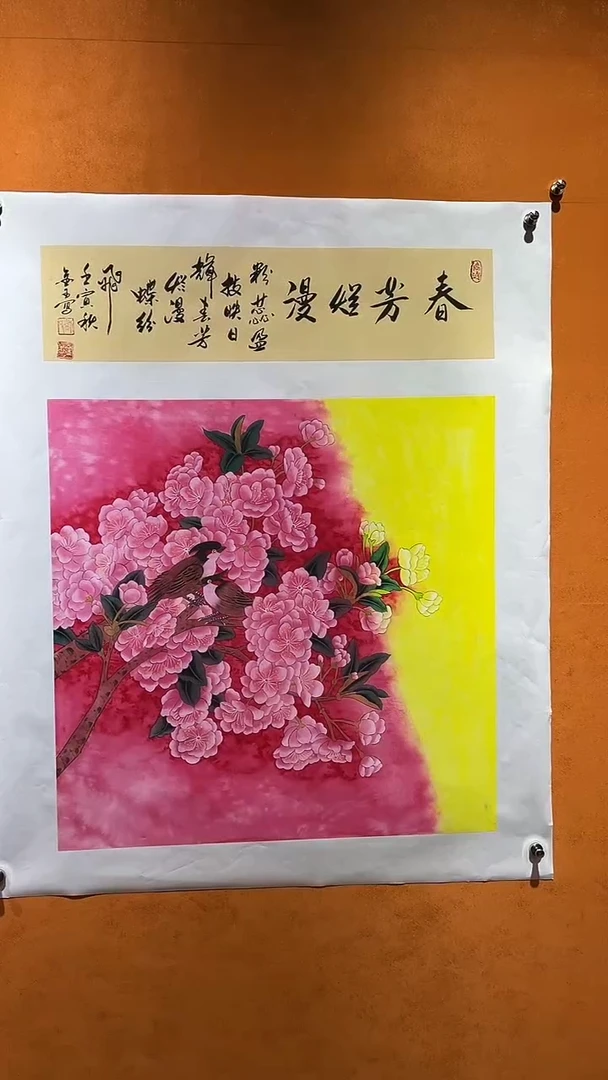 春芳烂漫
粉蕊盈
枝映日
辉春芳
烂漫
蝶纷
飛
壬寅秋